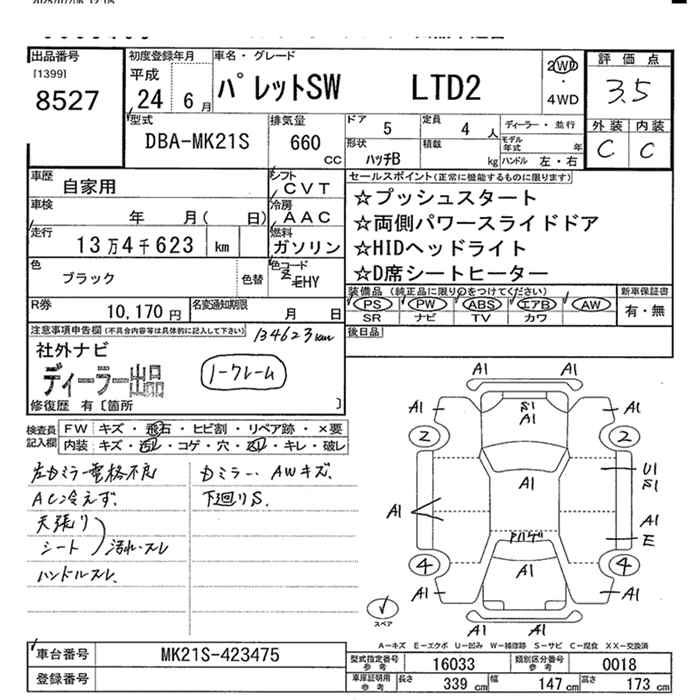 出品番号
[1399]
8527
初度登録年月
平成
24 6 月
車名・グレード
パレットSW LTD2
2WD
・
4WD
評価点
3.5
外装 内装
C C
型式
DBA-MK21S
排気量
660
cc
ドア 5
定員 4 人
ディーラー・並行
形状
ハッチB
積載 kg
モデル年式 年
ハンドル 左・右
車歴
自家用
シフト
CVT
車検
年 月( 日)
冷房
AAC
走行
13万4千623 km
燃料
ガソリン
色
ブラック
色替
色コード
ZEHY
R券
10,170 円
名変通知期限
月 日
セールスポイント(正常に機能するものに限ります)
☆プッシュスタート
☆両側パワースライドドア
☆HIDヘッドライト
☆D席シートヒーター
装備品 (純正品に限り○をつけてください)
PS PW ABS エアB AW
SR ナビ TV カワ
新車保証書
有・無
後日品
注意事項申告欄(不具合内容等は具体的に記入して下さい)
134623km
社外ナビ
ディーラー出品
ノークレーム
修復歴 有〔箇所 〕
検査員
記入欄
FW キズ・飛石・ヒビ割・リペア跡・×要
内装 キズ・汚レ・コゲ・穴・凹レ・キレ・破レ
左Dミラー電格不良
AC冷えず.
天張り
シート
汚れ・スレ
ハンドルスレ.
Dミラー、AWキズ.
下廻りS.
A1
A1
S1
A1
A1
2
2
A1
U1
S1
A1
A1
E
ドアバイザ
A1
4
4
A1
A1
A1
スペア
A-キズ E-エクボ U-凹み W-補修跡 S-サビ C-腐食 XX-交換済
車台番号
MK21S-423475
登録番号
型式指定番号
参考
16033
類別区分番号
参考
0018
車庫証明用
参考
長さ 339 cm
幅 147 cm
高さ 173 cm